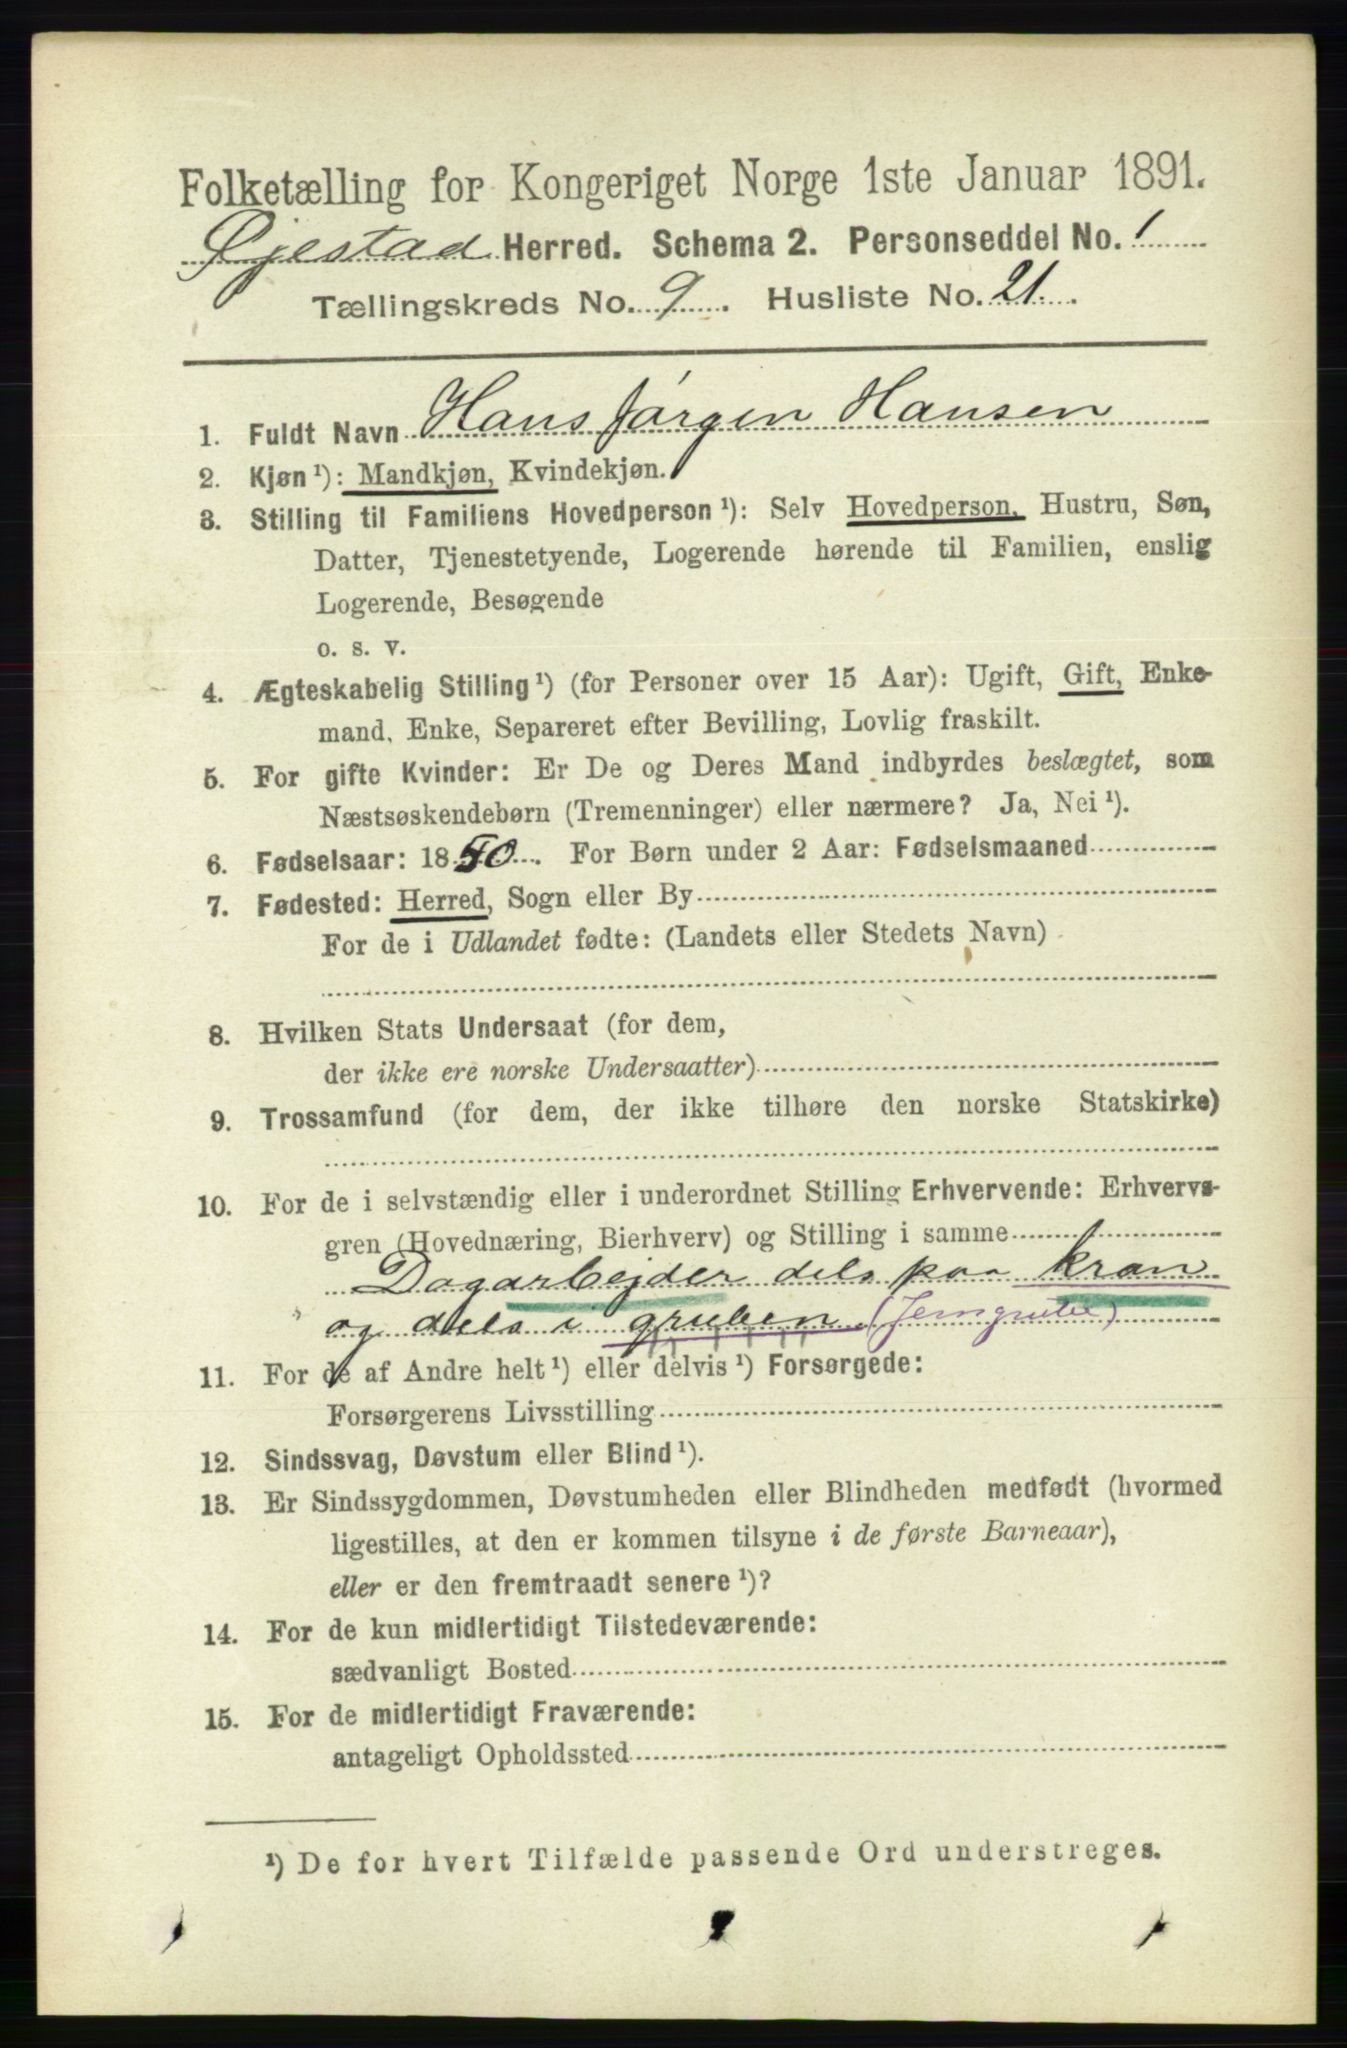 Folketælling for Kongeriget Norge 1ste Januar 1891.
Øjestad Herred. Schema 2. Personseddel No. 1
Tællingskreds No. 9. Husliste No. 21.
1. Fuldt Navn Hans Jørgen Hansen
2. Kjøn¹): Mandkjøn, Kvindekjøn.
3. Stilling til Familiens Hovedperson¹): Selv Hovedperson, Hustru, Søn,
Datter, Tjenestetyende, Logerende hørende til Familien, enslig
Logerende, Besøgende
o. s. v.
4. Ægteskabelig Stilling¹) (for Personer over 15 Aar): Ugift, Gift, Enke-
mand, Enke, Separeret efter Bevilling, Lovlig fraskilt.
5. For gifte Kvinder: Er De og Deres Mand indbyrdes beslægtet, som
Næstsøskendebørn (Tremenninger) eller nærmere? Ja, Nei¹).
6. Fødselsaar: 1850. For Børn under 2 Aar: Fødselsmaaned
7. Fødested: Herred, Sogn eller By
For de i Udlandet fødte: (Landets eller Stedets Navn)
8. Hvilken Stats Undersaat (for dem,
der ikke ere norske Undersaatter)
9. Trossamfund (for dem, der ikke tilhøre den norske Statskirke)
10. For de i selvstændig eller i underordnet Stilling Erhvervende: Erhvervs-
gren (Hovednæring, Bierhverv) og Stilling i samme
Dagarbejder dels paa kran
og dels i gruben. (Jerngrube)
11. For de af Andre helt¹) eller delvis¹) Forsørgede:
Forsørgerens Livsstilling
12. Sindssvag, Døvstum eller Blind¹).
13. Er Sindssygdommen, Døvstumheden eller Blindheden medfødt (hvormed
ligestilles, at den er kommen tilsyne i de første Barneaar),
eller er den fremtraadt senere¹)?
14. For de kun midlertidigt Tilstedeværende:
sædvanligt Bosted
15. For de midlertidigt Fraværende:
antageligt Opholdssted
¹) De for hvert Tilfælde passende Ord understreges.